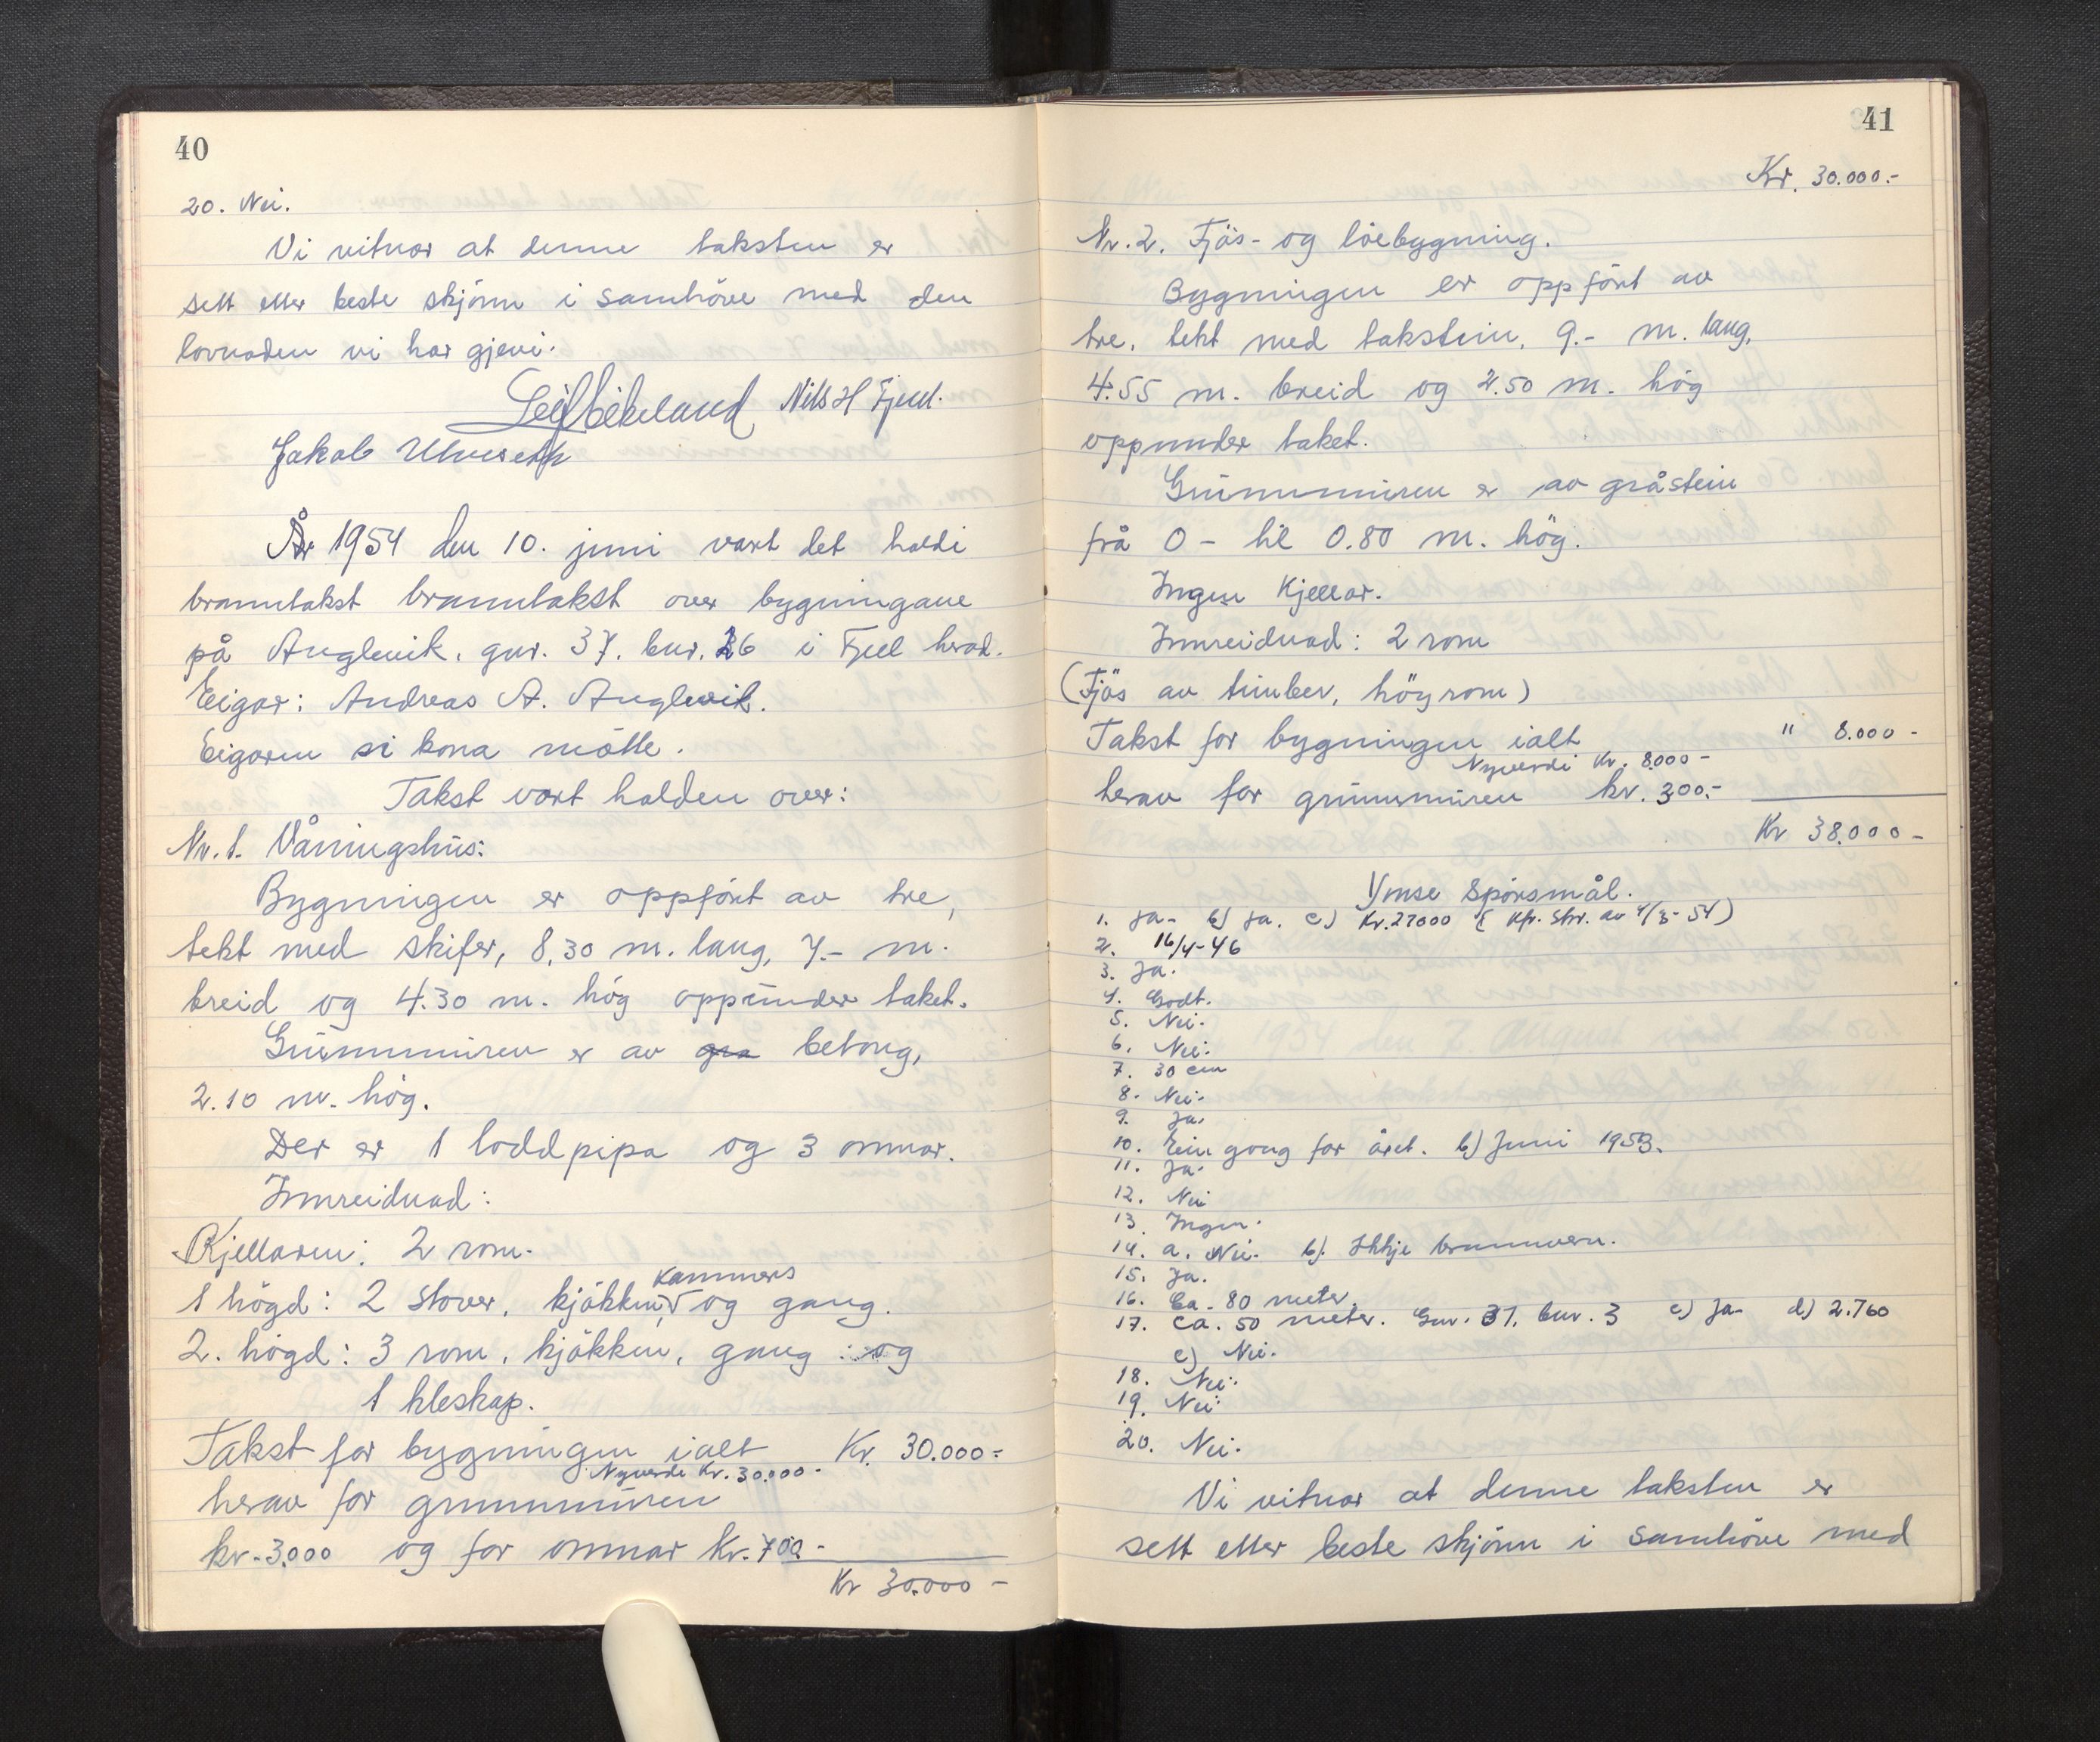 40
20. Nei.
Vi vitnar at denne taksten er
sett etter beste skjönn i samhöve med den
lovnaden vi har gjevi.
Nils H Fjell.
Jakob Ulveseth
År 1954 den 10. juni vart det haldi
branntakst branntakst over bygningane
på Anglevik, gnr. 37. bnr. 26 i Fjell herad.
Eigar: Andreas A. Anglevik.
Eigaren si kona mötte.
Takst vart halden over:
Nr. 1. Våningshus:
Bygningen er oppfört av tre,
tekt med skifer, 8,30 m. lang, 7.- m.
breid og 4.30 m. hög oppunder taket.
Grunnmuren er av gra betong,
2.10 m. hög.
Der er 1 loddpipa og 3 omnar.
Innreidnad:
Kjellaren: 2 rom.
kammers
1 högd: 2 stover, kjökken, og gang.
2. högd: 3 rom, kjökken, gang og
1 kleskap.
Takst for bygningen ialt Kr. 30.000.-
Nyverde Kr. 30.000.-
herav for grunnmuren
kr. 3.000 og for omnar kr. 700.-
Kr 30.000 -
41
Kr. 30.000.-
Nr. 2. Fjös- og löebygning.
Bygningen er oppfört av
tre, tekt med takstein, 9.- m. lang,
4.55 m. breid og 2.50 m. hög
oppunder taket.
Grunnmuren er av gråstein
frå 0 - til 0.80 m. hög.
Ingen Kjellar.
Innreidnad: 2 rom
(Fjös av timber, höyrom)
Takst for bygningen ialt " 8.000 -
Nyverdi Kr. 8.000 -
herav for grunnmuren kr. 300.-
Kr 38.000 -
Ymse Spörsmål.
1. Ja- b) Ja. c) Kr. 27000 ( Kfr. skr. av 4/3-54)
2. 16/4-46
3. Ja.
4. Godt.
5. Nei.
6. Nei.
7. 30 cm
8. Nei.
9. Ja.
10. Ein gong for året. b) Juni 1953.
11. Ja.
12. Nei
13. Ingen.
14. a. Nei. b). Ikkje brannvern.
15. Ja.
16. Ca. 80 meter.
17. Ca. 50 meter. Gnr. 37. bnr. 3 c) Ja- d) 2.760
e) Nei.
18. Nei.
19. Nei.
20. Nei.
Vi vitnar at denne taksten er
sett etter beste skjönn i samhöve med